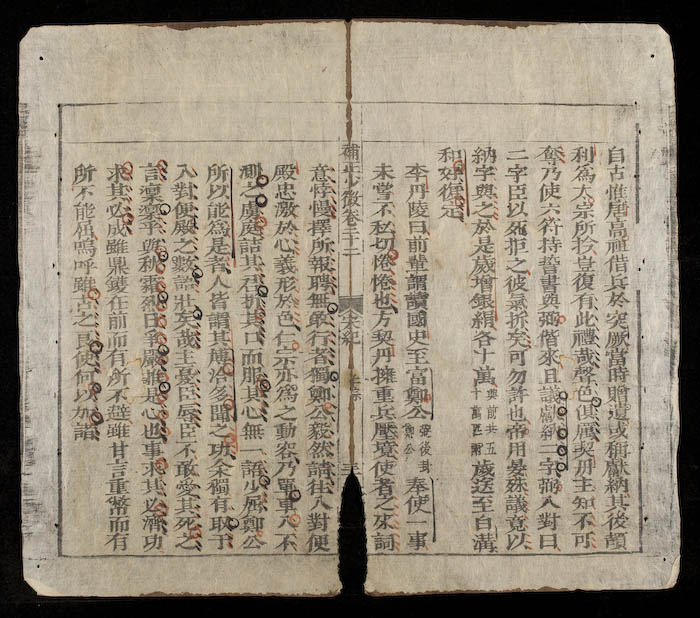 自古惟唐高祖借兵於突厥當時贈遺或稱獻納其後頡
利爲太宗所擒豈復有此禮哉聲色俱厲契丹主知不可
奪乃使六符持誓書與弼偕來且議獻納二字弼入對曰
二字臣以死拒之彼氣折矣可勿許也帝用晏殊議竟以
納字與之於是歲增銀絹各十萬與前共五十萬匹兩歲送至白溝
和好復定
李丹陵曰前輩謂讀國史至富鄭公弼後封鄭公奉使一事
未嘗不私切惓惓也方契丹擁重兵壓境使者之來詞
補正少微卷三十二 宋紀 三
意悖慢擇所報聘無敢行者獨鄭公毅然請往入對便
殿忠激於心義形於色仁宗亦爲之動容乃單車入不
測之虜庭詰其君折其口而服其心無一語少屈鄭公
所以能爲是者人皆謂其博洽多聞之功余獨有取于
入對便殿之數語壯矣哉主憂臣辱臣不敢愛其死之
言凜凜乎與秋霜烈日爭嚴推是心也事求其必濟功
求其必成雖鼎鑊在前而有所不避雖甘言重幣而有
所不能屈嗚呼雖古之良使何以加諸